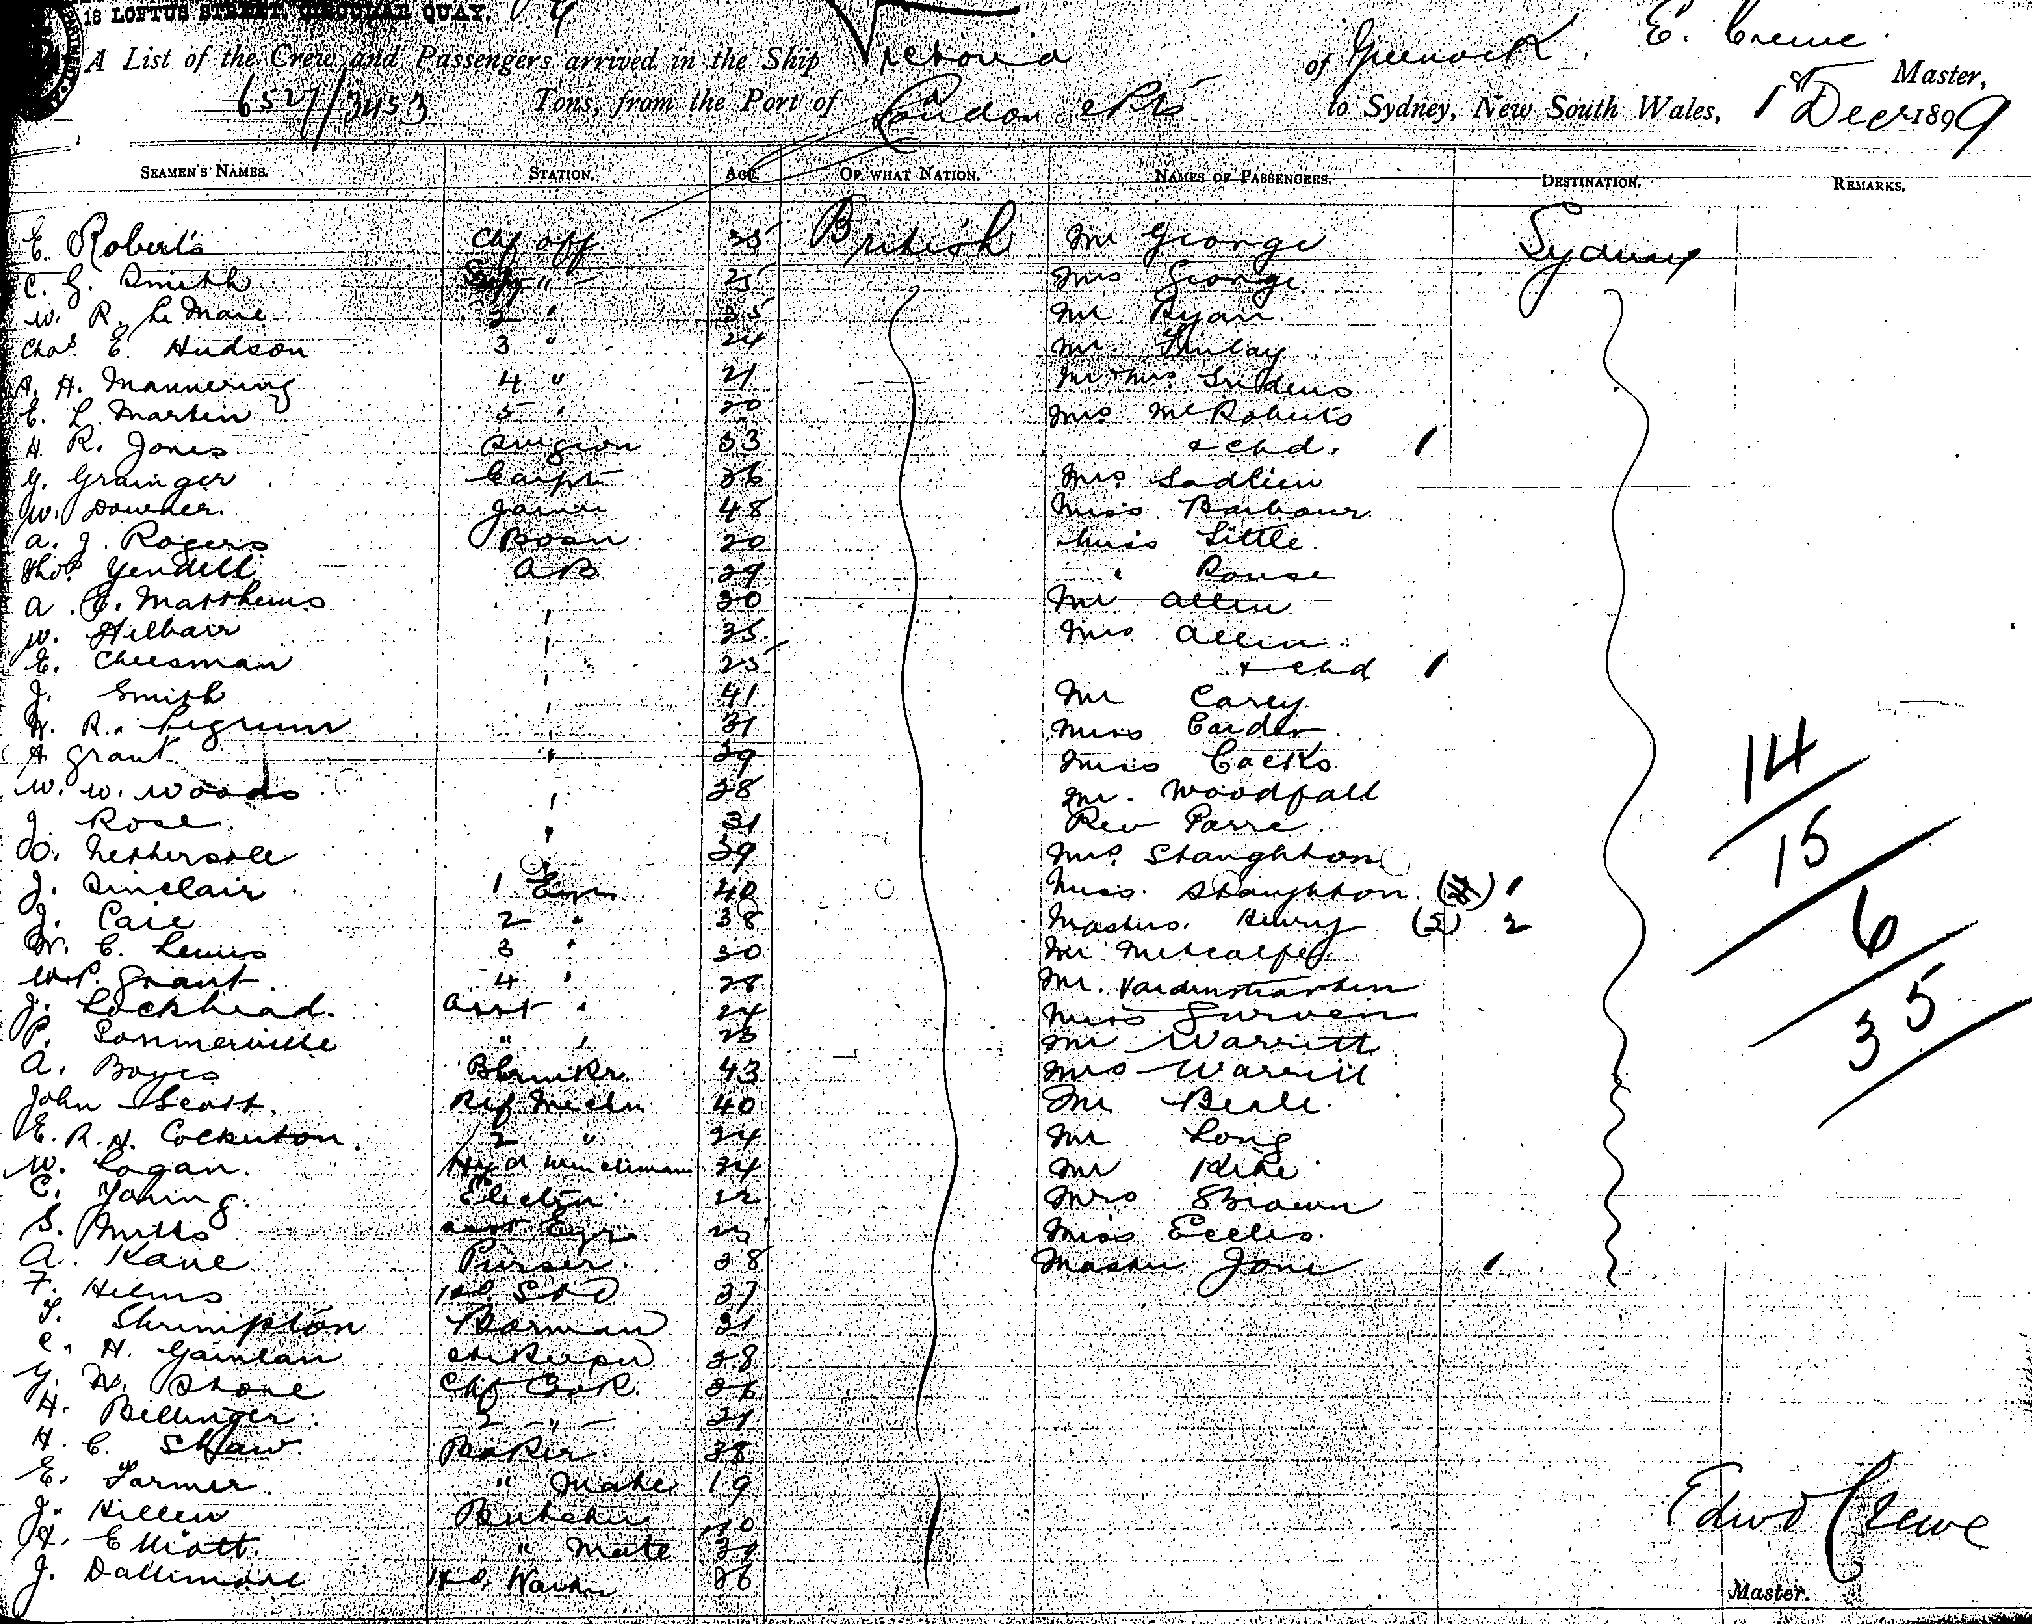 16 LOFTUS STREET, CIRCULAR QUAY.
A List of the Crew and Passengers arrived in the Ship Victoria of Greenock, E. Crewe Master,
6527/3453 Tons, from the Port of London & Pts to Sydney, New South Wales, 1st Decr 1899
SEAMEN'S NAMES. STATION. AGE. OF WHAT NATION. NAMES OF PASSENGERS. DESTINATION. REMARKS.
E. Roberts Chf off. 35 British Mr George Sydney
C. G. Smith " 25 Mrs George
W. R. Le Mare 2 " 25 Mr Ryan
Chas. E. Hudson 3 " 24 Mr. Finlay
A. H. Mannering 4 " 21 Mr & Mrs
E. L. Martin 5 " 20 Mrs McRoberts
H. R. Jones Surgeon 33 & chd. 1
G. Grainger Carptr 36 Mrs Sadlier
W. 48 Miss Barbour
A. J. Rogers Bosn 20 Miss Little
Thos. Yendell AB 29 " Rouse
A. E. Matthews " 30 Mr Allen
W. " 35 Mrs Allen
E. Cheesman " 25 & chd 1
J. Smith " 41 Mr Carey
H. R. Pegrum " 31 Miss
A Grant " 39 Miss Cocks
W. W. Woods " 38 Mr. Woodfall 14
J. Rose " 31 Rev 15
O. Nethersole " 39 Mrs Staughton
J. Sinclair 1 Eng 40 Miss Staughton 1
J. Caie 2 " 38 Masters Henry (2) 2 6
W. C. Lewis 3 " 30 Mr Metcalfe
W. P. Grant 4 " 28 Mr.
J. Lockhead. Asst " 24 Miss 35
P. Sommerville " " 23 Mr Warritt
A. Boyes 43 Mrs Warritt
John Scott. Ref Mechn 40 Mr Beale
E. R. H. Cockerton. 2 " 24 Mr Long
W. Logan. 24 Mr
C. Young. Electn 22 Mrs Brown
S. Asst Eng 25 Miss Eccles.
A. Kane Purser 38 Master Jone 1
F. Helms Hd Std 37
T. Shrimpton Barman 31
C. H. 28
G. W. Stone Chf Cook. 36
H. Bellinger 2 " 21
H. C. Shaw Baker 38
E. Farmer. " Mate 19
J. Hillen Butcher
H. Elliott. " Mate
J. Dallimore 26
Edwd Crewe
Master.